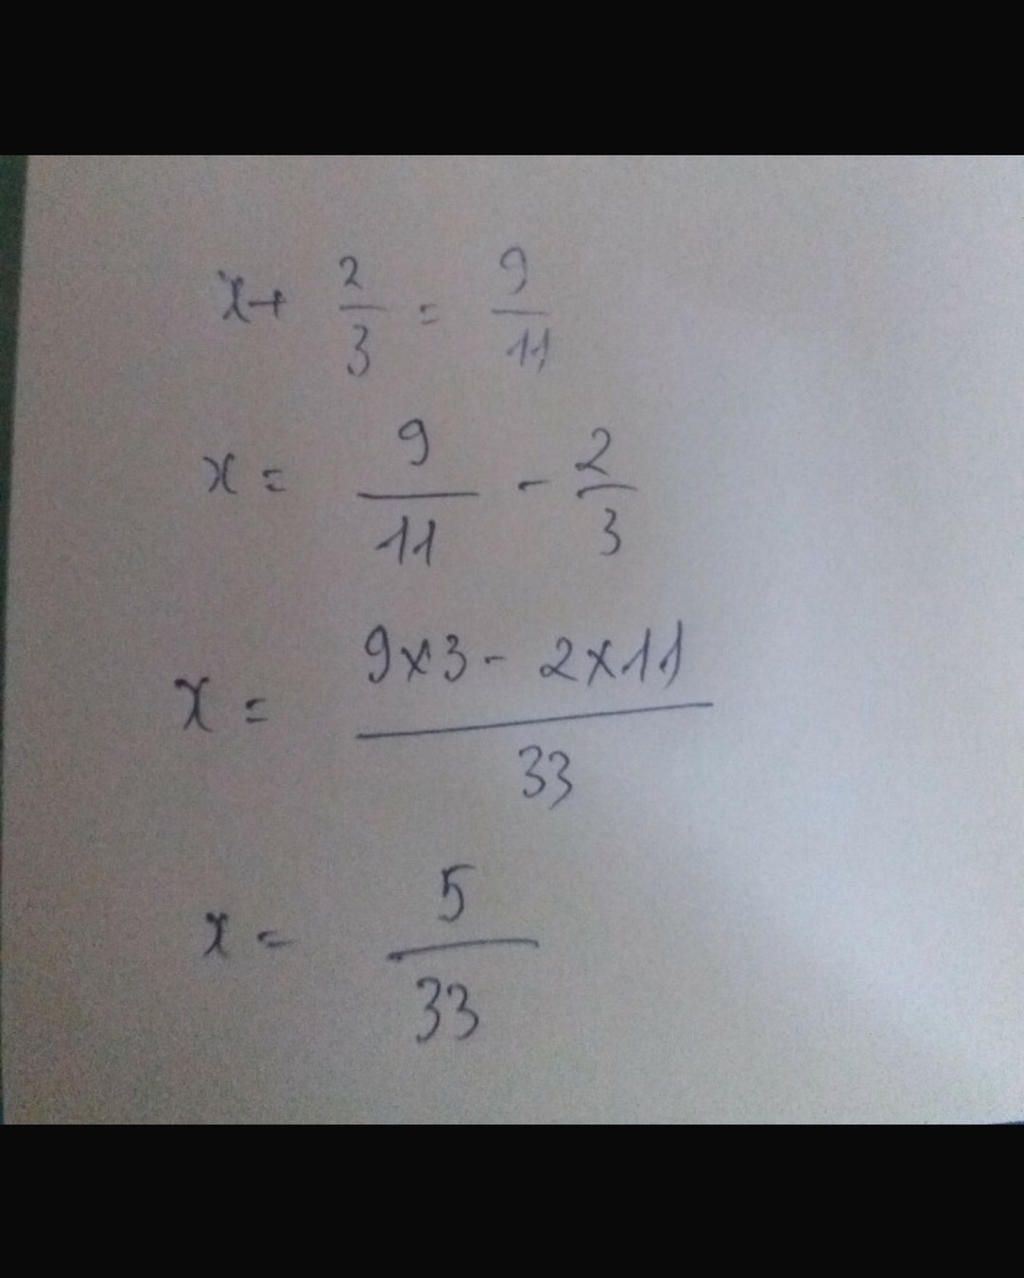 x + 2/3 = 9/11
x = 9/11 - 2/3
x = 9x3 - 2x11/33
x = 5/33